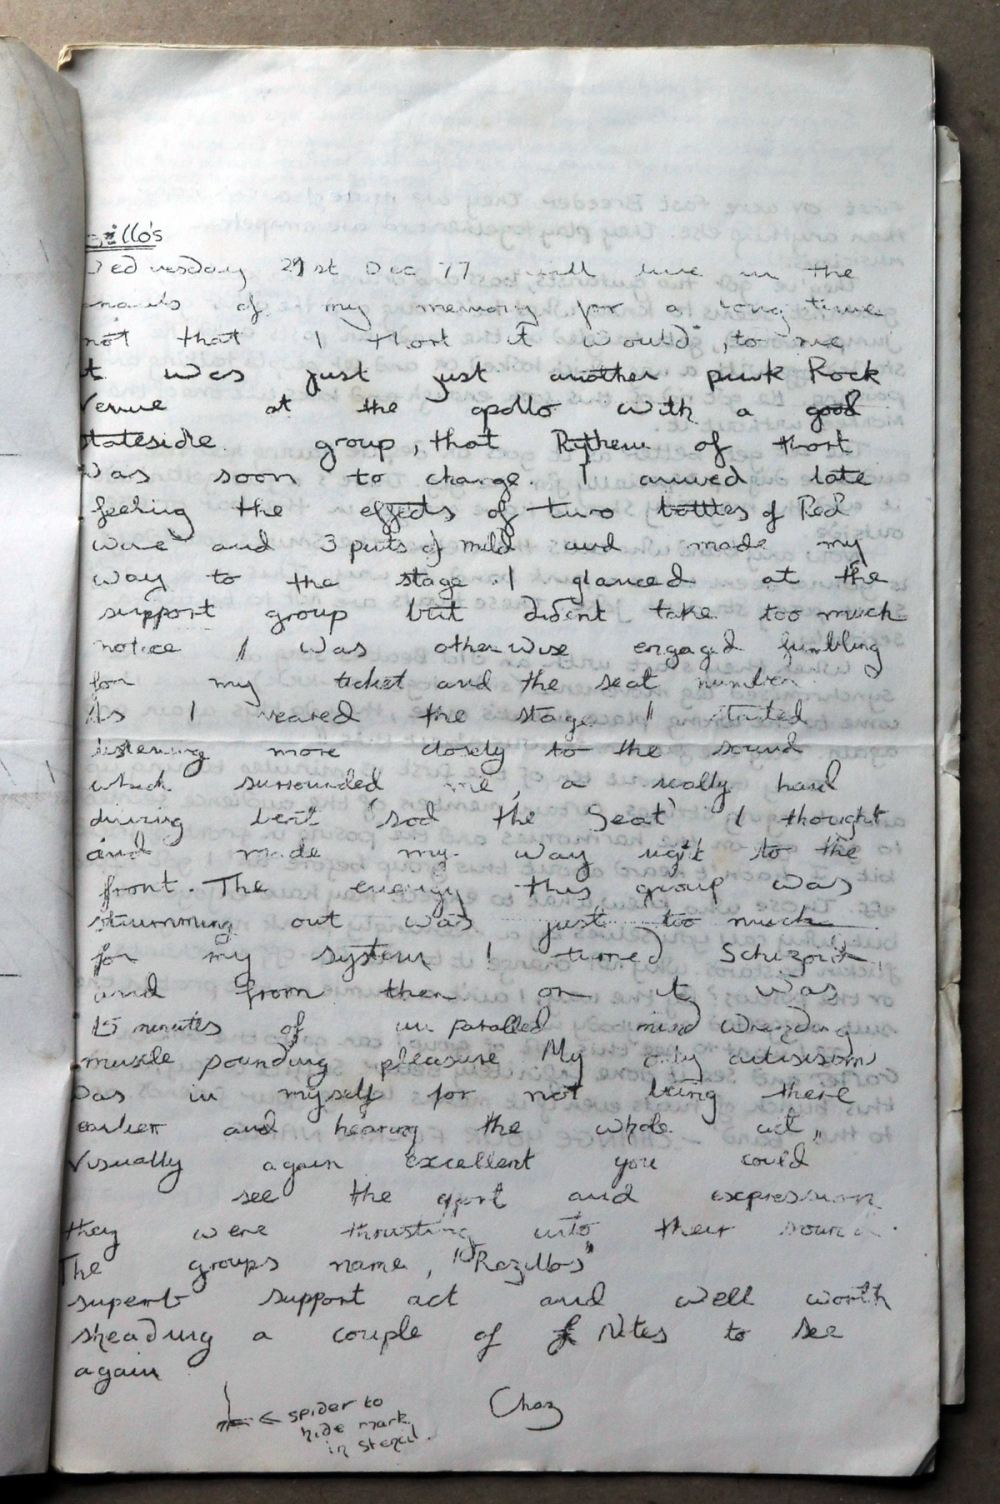 zillo's
Wednesday 21st Dec 77 will live in the
annals of my memory for a long time
not that I thort it would, to me
it was just just another punk Rock
Venue at the apollo with a good
stateside group, that Rythem of thort
was soon to change. I arrived late
feeling the effects of two bottles of Red
wine and 3 pints of mild and made my
way to the stage. I glanced at the
support group but dident take too much
notice I was otherwise engaged fumbling
for my ticket and the seat number
As I neared the stage I started
listening more closely to the sound
which surrounded me, a really hard
driving beat 'sod the Seat' I thought
and made my way rigt to the
front. The energy this group was
strumming out was just too much
for my system I turned Schizoid
and from then on it was
15 minutes of un paralled mind wrending
muscle pounding pleasure My only critisism
was in myself for not being there
earlier and hearing the whole act,,
Visually again excellent you could
see the effort and expression
they were thrusting into their sound.
The groups name, "Rezillos"
superb support act and well worth
sheading a couple of Nites to see
again
Chaz
← spider to
hide mark
in stencil.